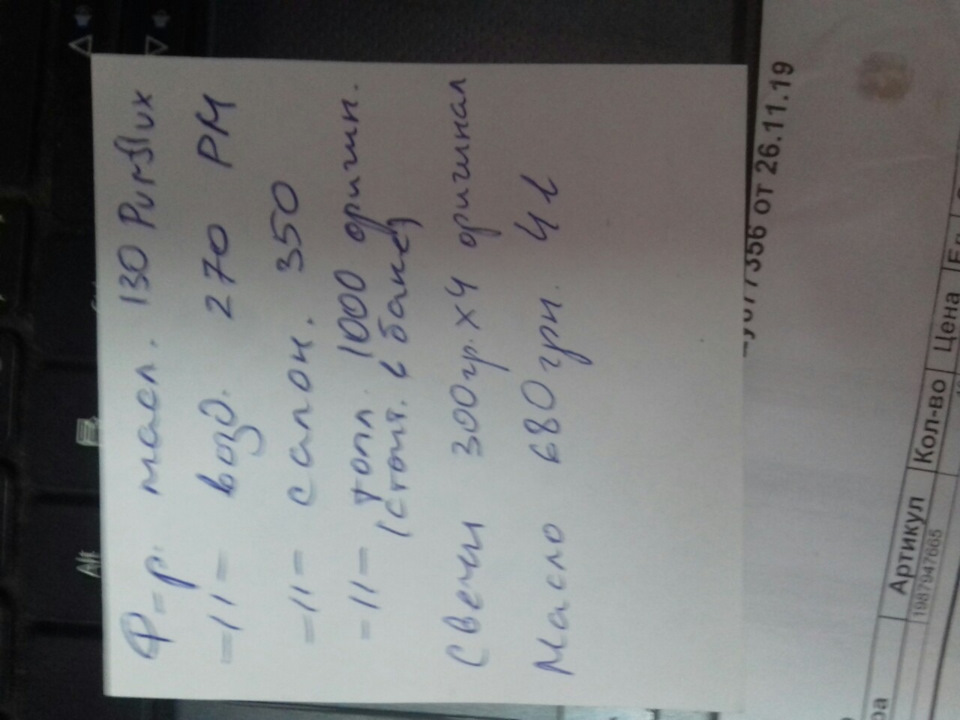 Ф-р. масл. 130 Purflux
-11- возд. 270 PM
-11- салон. 350
-11- топл. 1000 оригин.
(стоит в баке)
Свечи 300гр.х4 оригинал
Масло 680 грн. 4л
от 26.11.19
Артикул Кол-во Цена
1987947665
Alt